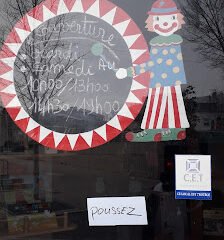 Ouverture
Mardi
Au
Samedi
10h00/13h00
14h30/19h00
C.E.T
POUSSEZ